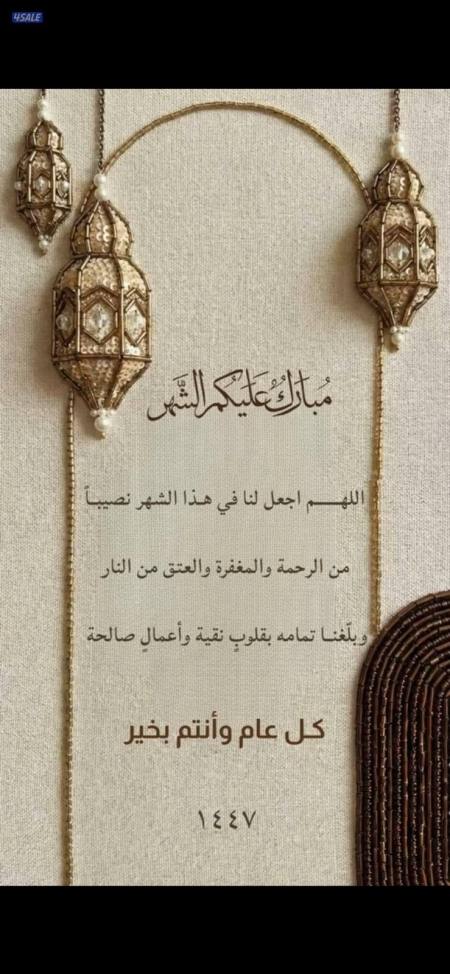 4SALE
مُبَارَكٌ عَلَيْكُم الشَّهر
اللهـــم اجعل لنا في هـذا الشهر نصيبـاً
من الرحمة والمغفرة والعتق من النار
وبلّغنـا تمامه بقلوبٍ نقية وأعمالٍ صالحة
كـل عام وأنتم بخير
١٤٤٧